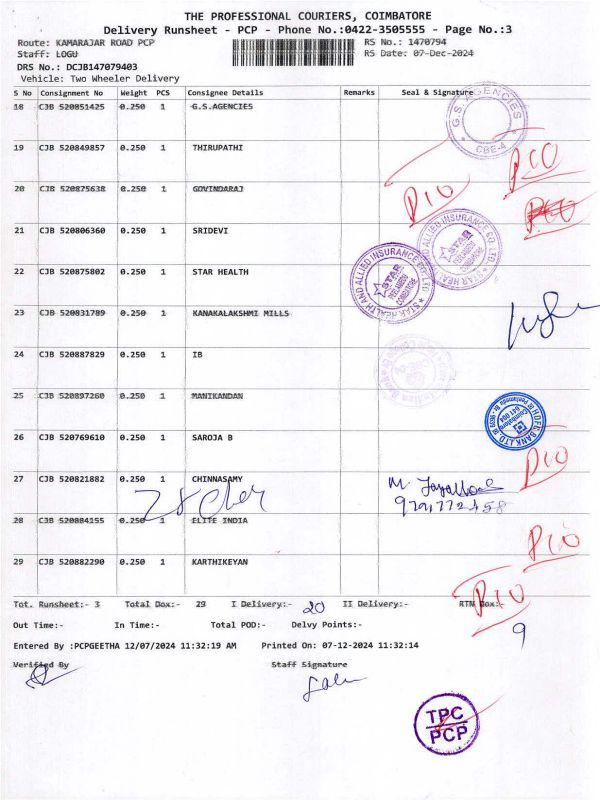 THE PROFESSIONAL COURIERS, COIMBATORE
Delivery Runsheet - PCP - Phone No.:0422-3505555 - Page No.:3
Route: KAMARAJAR ROAD PCP RS No.: 1470794
Staff: LOGU RS Date: 07-Dec-2024
DRS No.: DCJB147079403
Vehicle: Two Wheeler Delivery
S No Consignment No Weight PCS Consignee Details Remarks Seal & Signature
18 CJB 520851425 0.250 1 G.S.AGENCIES
G.S. AGENCIES
CBE-4
19 CJB 520849857 0.250 1 THIRUPATHI
20 CJB 520875638 0.250 1 GOVINDARAJ
21 CJB 520806360 0.250 1 SRIDEVI
22 CJB 520875802 0.250 1 STAR HEALTH
STAR HEALTH AND ALLIED INSURANCE CO. LTD
STAR
STAR HEALTH AND ALLIED INSURANCE CO. LTD
STAR
COIMBATORE
23 CJB 520831789 0.250 1 KANAKALAKSHMI MILLS
24 CJB 520887829 0.250 1 IB
25 CJB 520897260 0.250 1 MANIKANDAN
HDFC BANK LTD
Coimbatore
641 004
26 CJB 520769610 0.250 1 SAROJA B
27 CJB 520821882 0.250 1 CHINNASAMY
28 CJB 520884155 0.250 1 ELITE INDIA
29 CJB 520882290 0.250 1 KARTHIKEYAN
Tot. Runsheet:- 3 Total Dox:- 29 I Delivery:- 20 II Delivery:- RTN Dox:- 9
Out Time:- In Time:- Total POD:- Delvy Points:-
Entered By :PCPGEETHA 12/07/2024 11:32:19 AM Printed On: 07-12-2024 11:32:14
Verified By Staff Signature
TPC
PCP